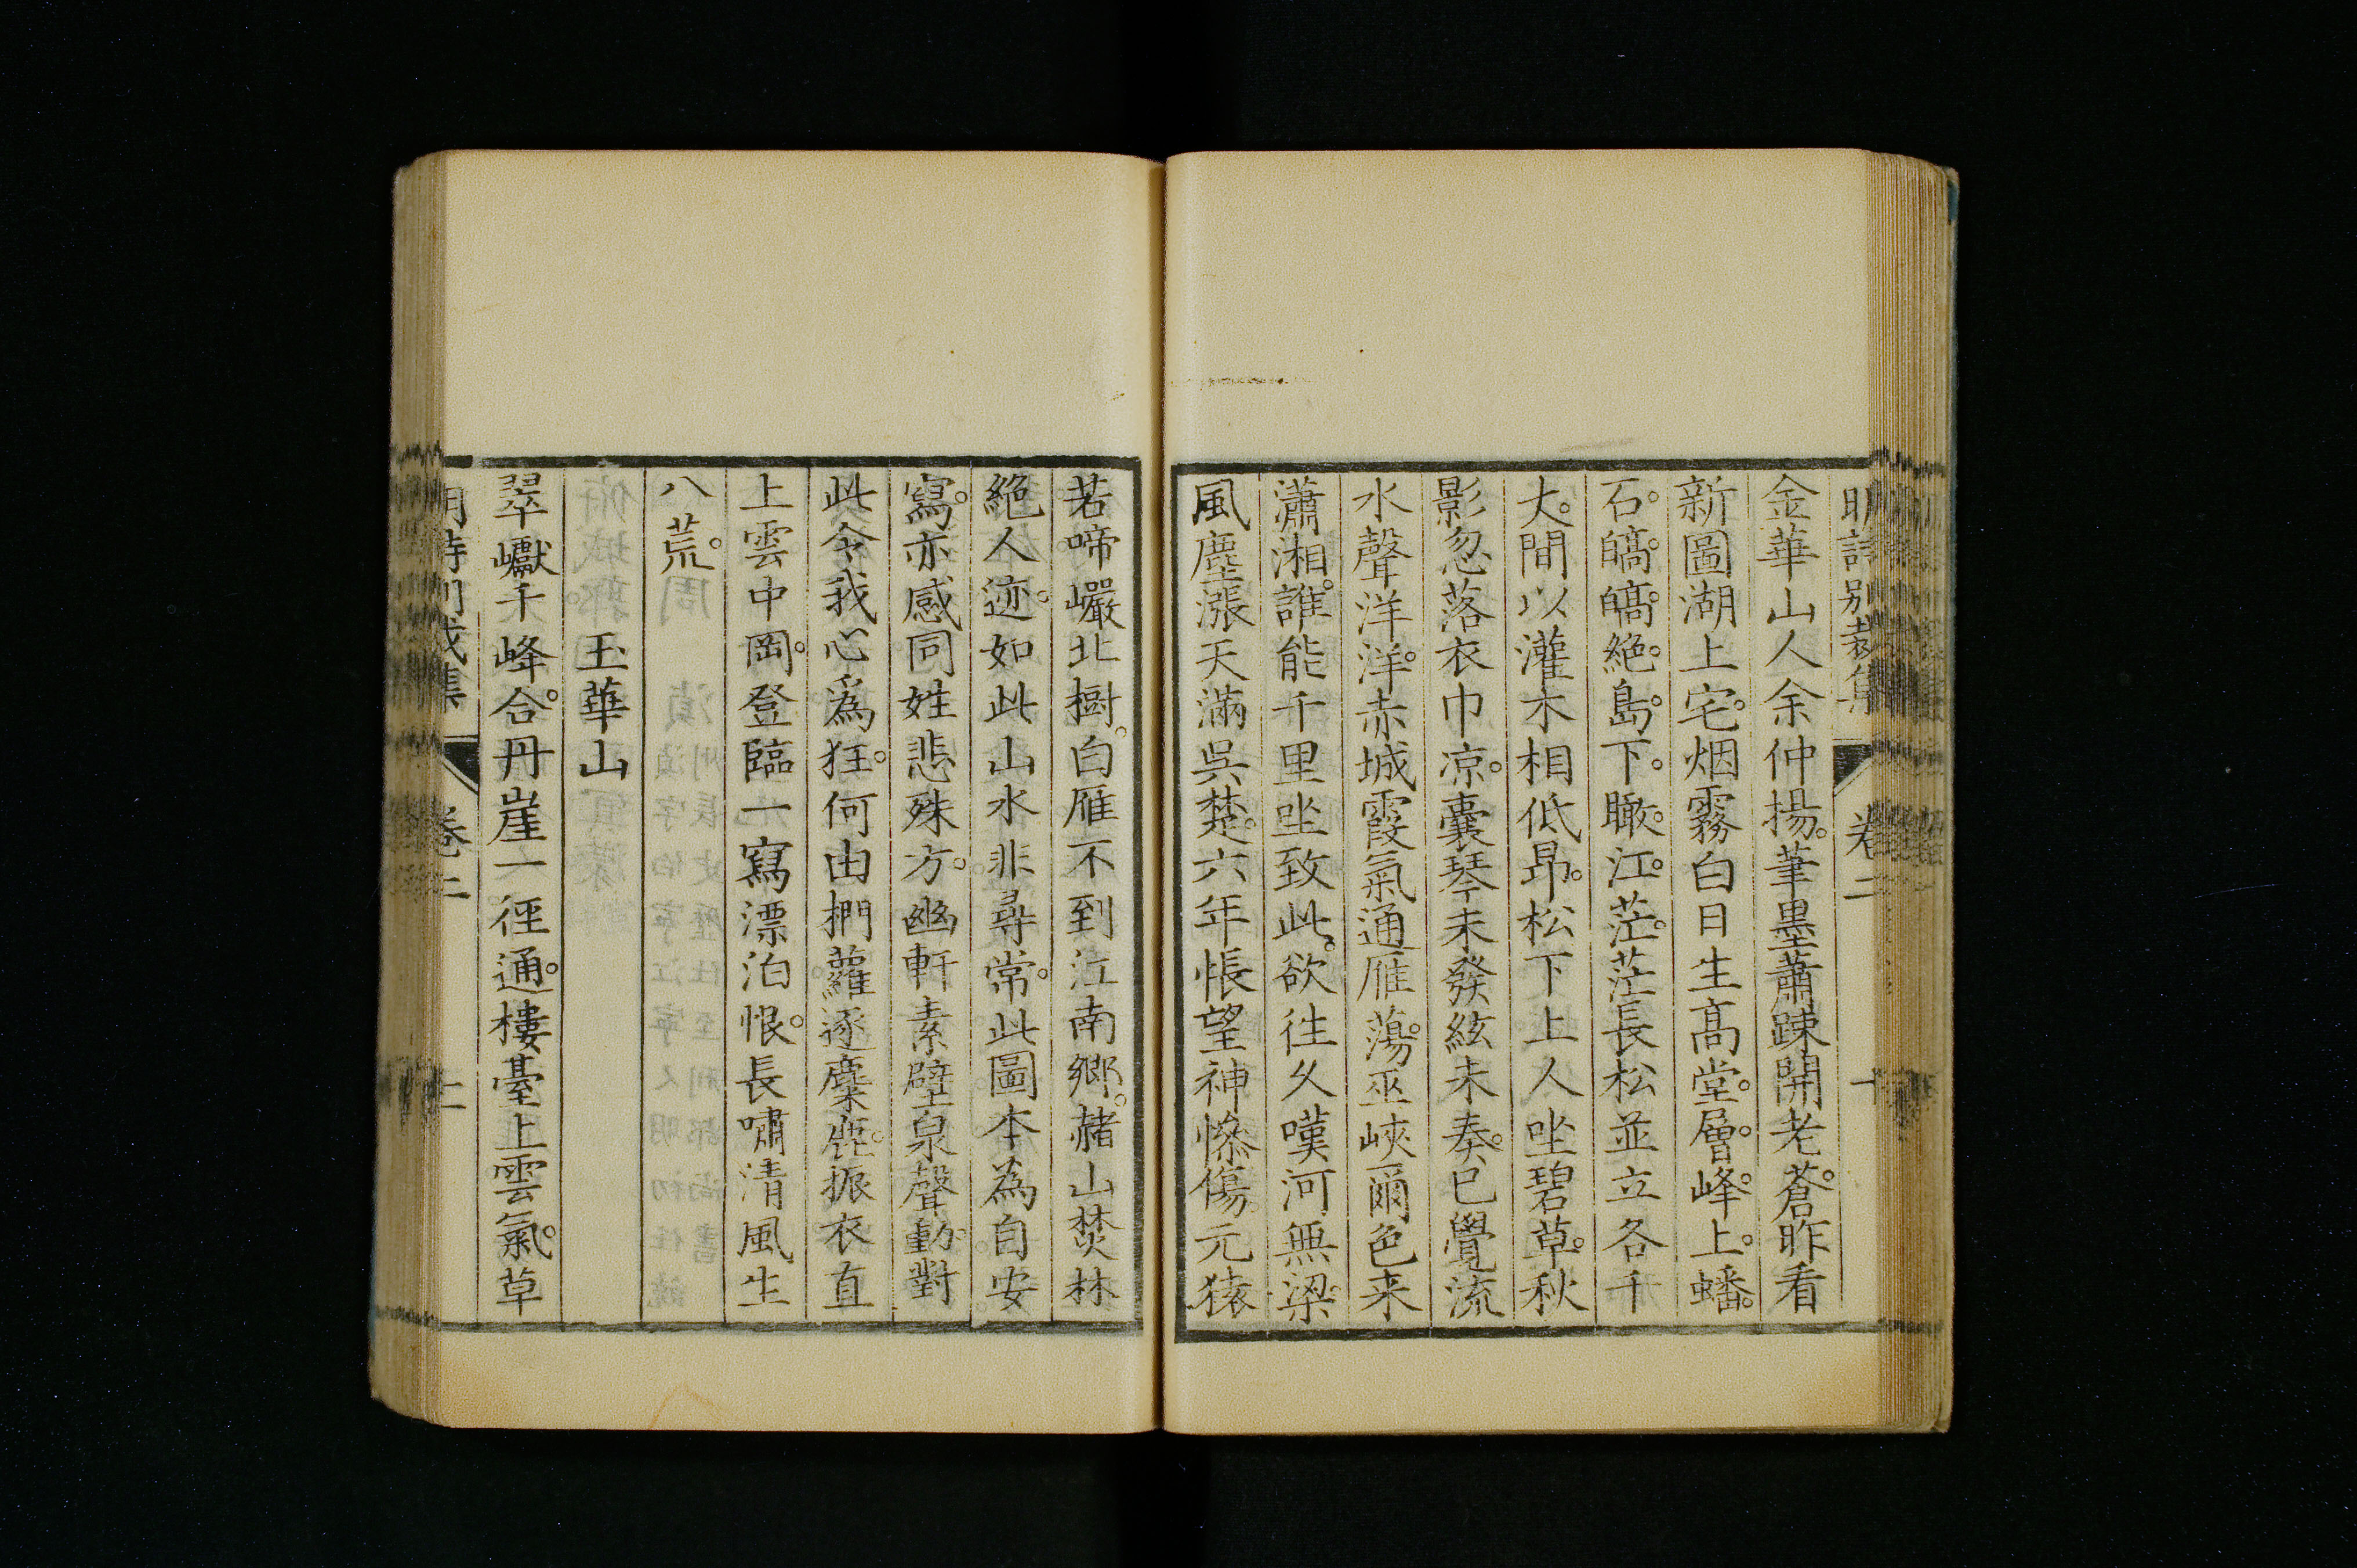 明詩別裁集 卷二 十
金華山人余仲揚。筆墨蕭疎開老蒼。昨看
新圖湖上宅。烟霧白日生髙堂。層。峰。上。蟠。
石。皜。皜。絶。島。下。瞰。江。茫。茫長松並立各千
丈。間以灌木相低昂。松下上人坐碧草。秋
影忽落衣巾凉。囊琴未發絃未奏。已覺流
水聲洋洋。赤城霞氣通雁蕩。巫峽爾色来
瀟湘。誰能千里坐致此。欲徃久嘆河無梁。
風塵漲天滿吳楚。六年悵望神慘傷。元猿
若啼巖北樹。白雁不到江南鄉。赭山焚林
絶人迹。如此山水非尋常。此圖本為自安
寫。亦感同姓悲殊方。幽軒素壁泉聲動。對
此令我心爲狂。何由捫蘿逐麋鹿。振衣直
上雲中岡。登臨一寫漂泊恨。長嘯清風生
八荒。
玉華山
翠巘千峰合。丹崖一徑通。樓臺上雲氣。草
明詩別裁集 卷二